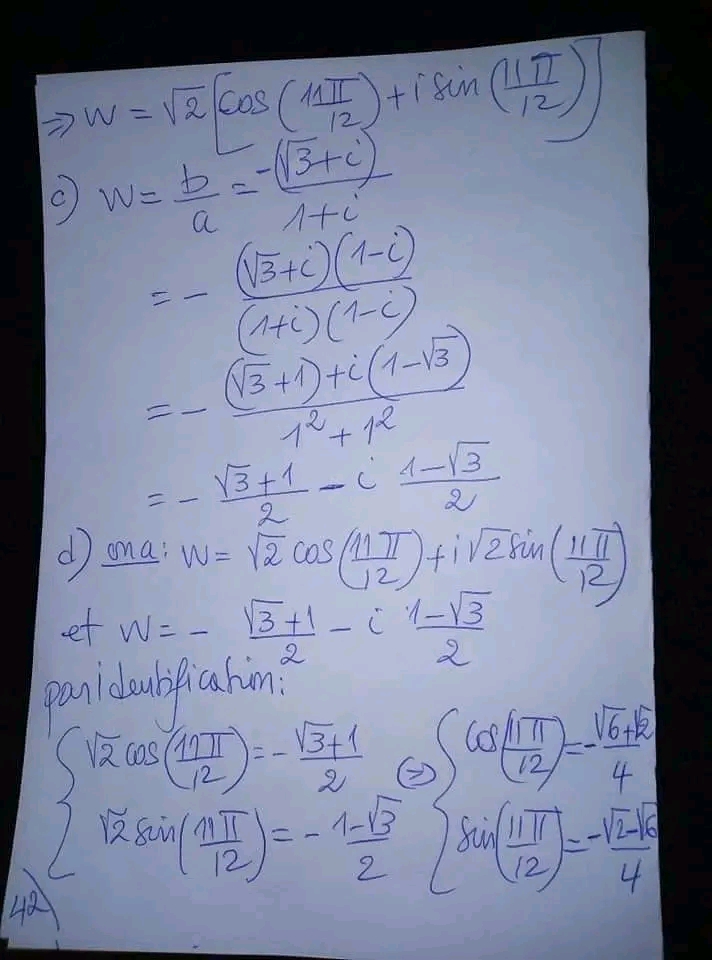 ⇒ W = √2 [cos(11π/12) + i sin(11π/12)]
c) W = b/a = -(√3+i)/1+i
= - (√3+i)(1-i)/(1+i)(1-i)
= - (√3+1)+i(1-√3)/1²+1²
= - √3+1/2 - i 1-√3/2
d) on a: W = √2 cos(11π/12) + i√2 sin(11π/12)
et W = - √3+1/2 - i 1-√3/2
par identification:
{ √2 cos(11π/12) = - √3+1/2 ⇔ { cos(11π/12) = -√6+√2/4
√2 sin(11π/12) = - 1-√3/2 sin(11π/12) = -√2-√6/4
42)